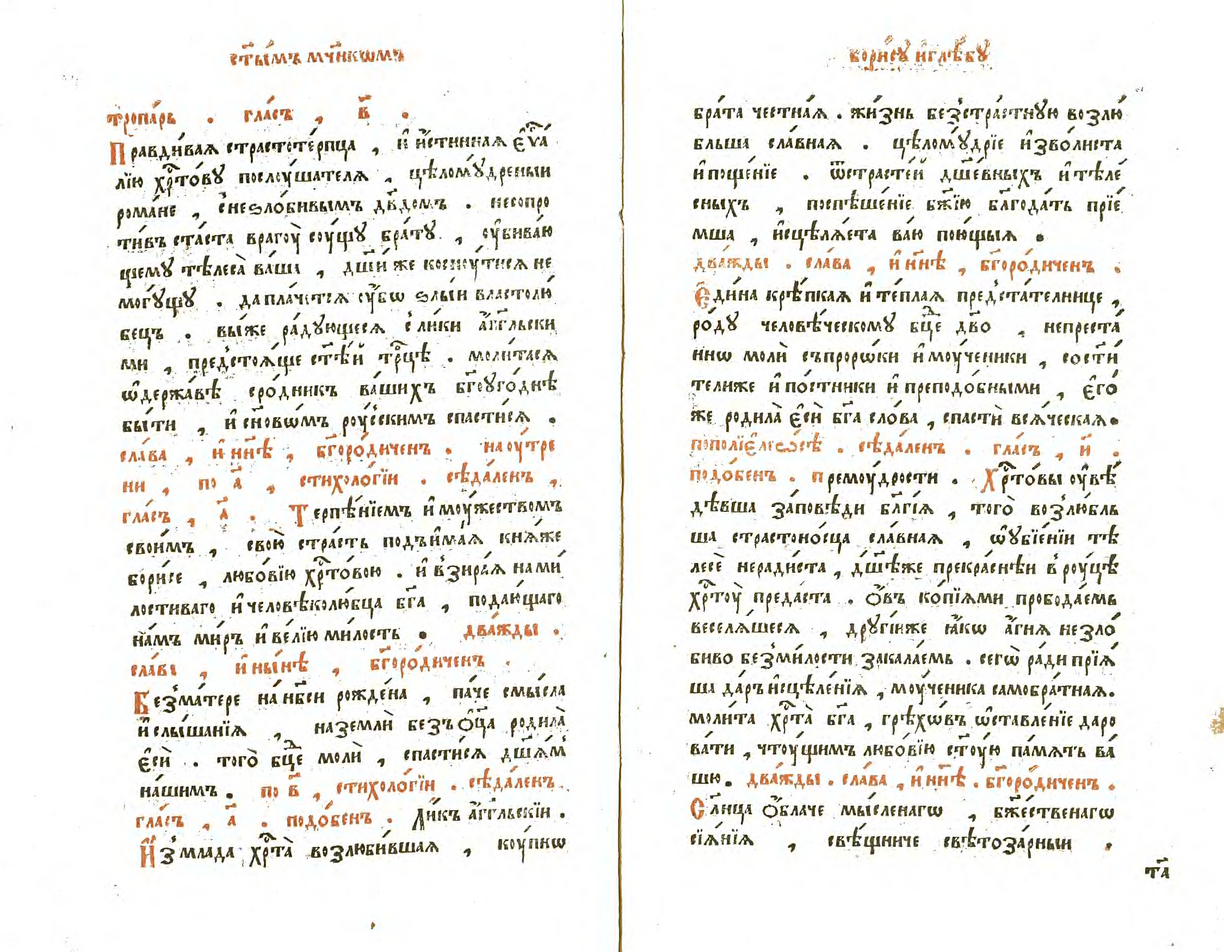 ст҃ы́мъ мч҃нкѡмъ
тропа́рь . гла́съ , в҃ .
Пра́вдивая страстоте́рпца , и҆ и҆́стинная є҆ѵⷢ҇а́
лїю хрⷭ҇то́ву послꙋ́шателя , цѣломꙋ́дреныи
рома́не , с̾неѕло́бивымъ дв҃домъ . несопро
ти́въ ста́ста врагꙋ̀ сꙋ́щꙋ бра́тꙋ , ᲂу҆бива́ю
щемꙋ тѣлеса̀ ва́ша , дш҃и́ же коснꙋ́тися не
могꙋ́щꙋ . да пла́чется ᲂу҆́бо ѕлы́и властолю́
бецъ . вы́ же ра́дꙋющеся с ли́ки а҆́гг҃льски
ми , предстоя́ще ст҃ѣ́й трⷪ҇цѣ . моли́тася
ѡ҆держа́вѣ сро́дникъ ва́шихъ бг҃оꙋго́днѣ
бы́ти , и҆ сн҃овѡ́мъ рꙋ́сскимъ спасти́ся .
сла́ва , и҆ нн҃ѣ , бг҃оро́диченъ . на ᲂу҆́тре
ни , по а҃ , стихоло́гїи . сѣда́ленъ ,
гла́съ , а҃ . Терпѣ́нїемъ и҆ мꙋ́жествомъ
свои́мъ , свою̀ стра́сть подъи́мая кня́же
бори́се , любо́вїю хрⷭ҇то́вою . и҆ взира́я на ми
лостиваго и҆ человѣколю́бца бг҃а , подаю́щаго
на́мъ ми́ръ и҆ ве́лїю ми́лость . два́жды .
сла́ва , и҆ ны́нѣ , бг҃оро́диченъ .
Без̾ма́тере на нб҃си рожде́на , па́че смы́сла
и҆ слы́шанїя , на землѝ без̾ ѻ҆ц҃а̀ родила̀
є҆сѝ . того̀ бцⷣе молѝ , спасти́ся дш҃а́мъ
на́шимъ . по в҃ , стихоло́гїи . сѣда́ленъ .
гла́съ , а҃ . подо́бенъ . Ли́къ а҆́гг҃льскїи .
И҆з̾мла́да хрⷭ҇та̀ возлюби́вшая , кꙋ́пнѡ
бори́сꙋ и҆ глѣ́бꙋ
бра́та честна́я . жи́знь безстра́стнꙋю возлю́
бльша сла́вная . цѣломꙋ́дрїе и҆зво́листа
и҆ поще́нїе . ѿстрасте́й дш҃е́вныхъ и҆ тѣле́
сныхъ , поспѣше́нїе бж҃їю бл҃года́ть прїе́
мша , и҆сцѣля́ета ва́ю пою́щыя .
два́жды . сла́ва , и҆ нн҃ѣ , бг҃оро́диченъ .
Є҆ди́на крѣ́пкая и҆ те́плая предста́телнице ,
ро́дꙋ человѣ́ческомꙋ бцⷣе дв҃о , непреста́
ннѡ молѝ съ прⷪ҇рѡки и҆ мꙋ́ченики , со ст҃и́
тели же и҆ по́стники и҆ преподо́бными , є҆го́
же родила̀ є҆сѝ бг҃а сло́ва , спастѝ вся́ческая .
по полїеле́ѡсѣ . сѣда́ленъ . гла́съ , и҃ .
подо́бенъ . премꙋ́дрости . Хрⷭ҇то́вы ᲂу҆вѣ́
дѣвша за́повѣди бл҃гі́я , того̀ возлю́бль
ша страстоно́сца сла́вная , ѡ҆ ᲂу҆бїе́нїи тѣ
лесѐ неради́ста , дш҃ѣ́ же прекра́снѣи в̾ рꙋ́цѣ
хрⷭ҇тꙋ́ преда́ста . Ѻ҆́въ ко́пїями прободае́мь
веселя́шеся , дрꙋгі́и же ꙗ҆́кѡ а҆́гня неѕло́
биво без̾ ми́лости закала́емь . сегѡ̀ ра́ди прїя́
ша да́ръ и҆сцѣле́нїя , мꙋ́ченика самобра́тная .
моли́та хрⷭ҇та̀ бг҃а , грѣхѡ́въ ѡ҆ставле́нїе даро
ва́ти , чтꙋ́щимъ любо́вїю ст҃ꙋ́ю па́мять ва́
шю . два́жды . сла́ва , и҆ нн҃ѣ . бг҃оро́диченъ .
Сл҃нца ѻ҆́блаче мы́сленагѡ , бж҃е́ственагѡ
сїя́нїя , свѣ́щниче свѣтоза́рныи .
та̀